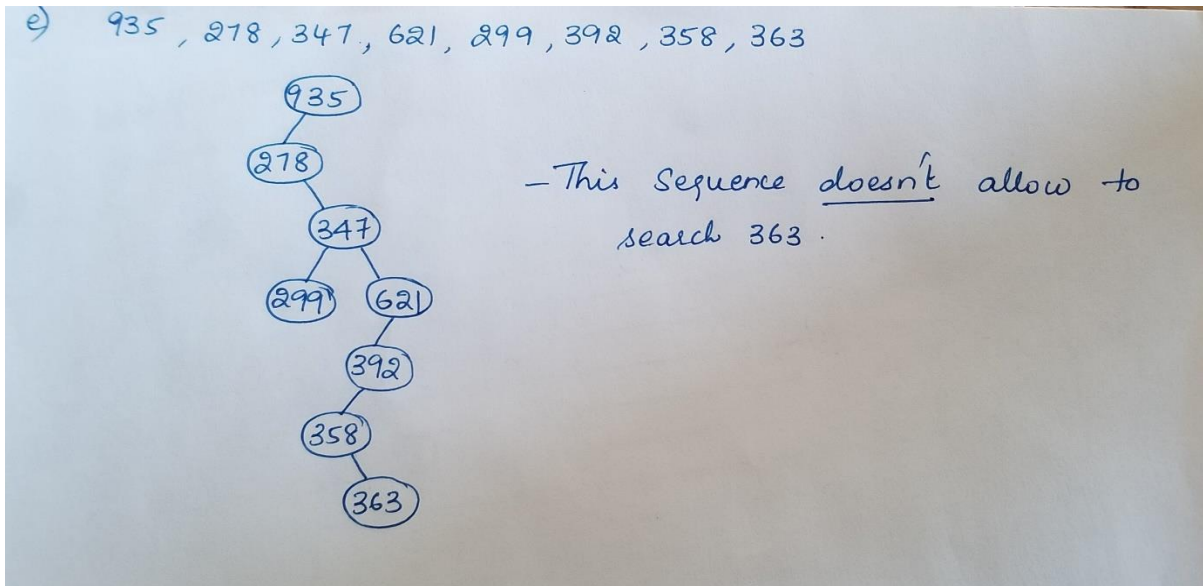 e) 935, 278, 347, 621, 299, 392, 358, 363
935
278
347
299 621
392
358
363
- This Sequence doesn't allow to
search 363.